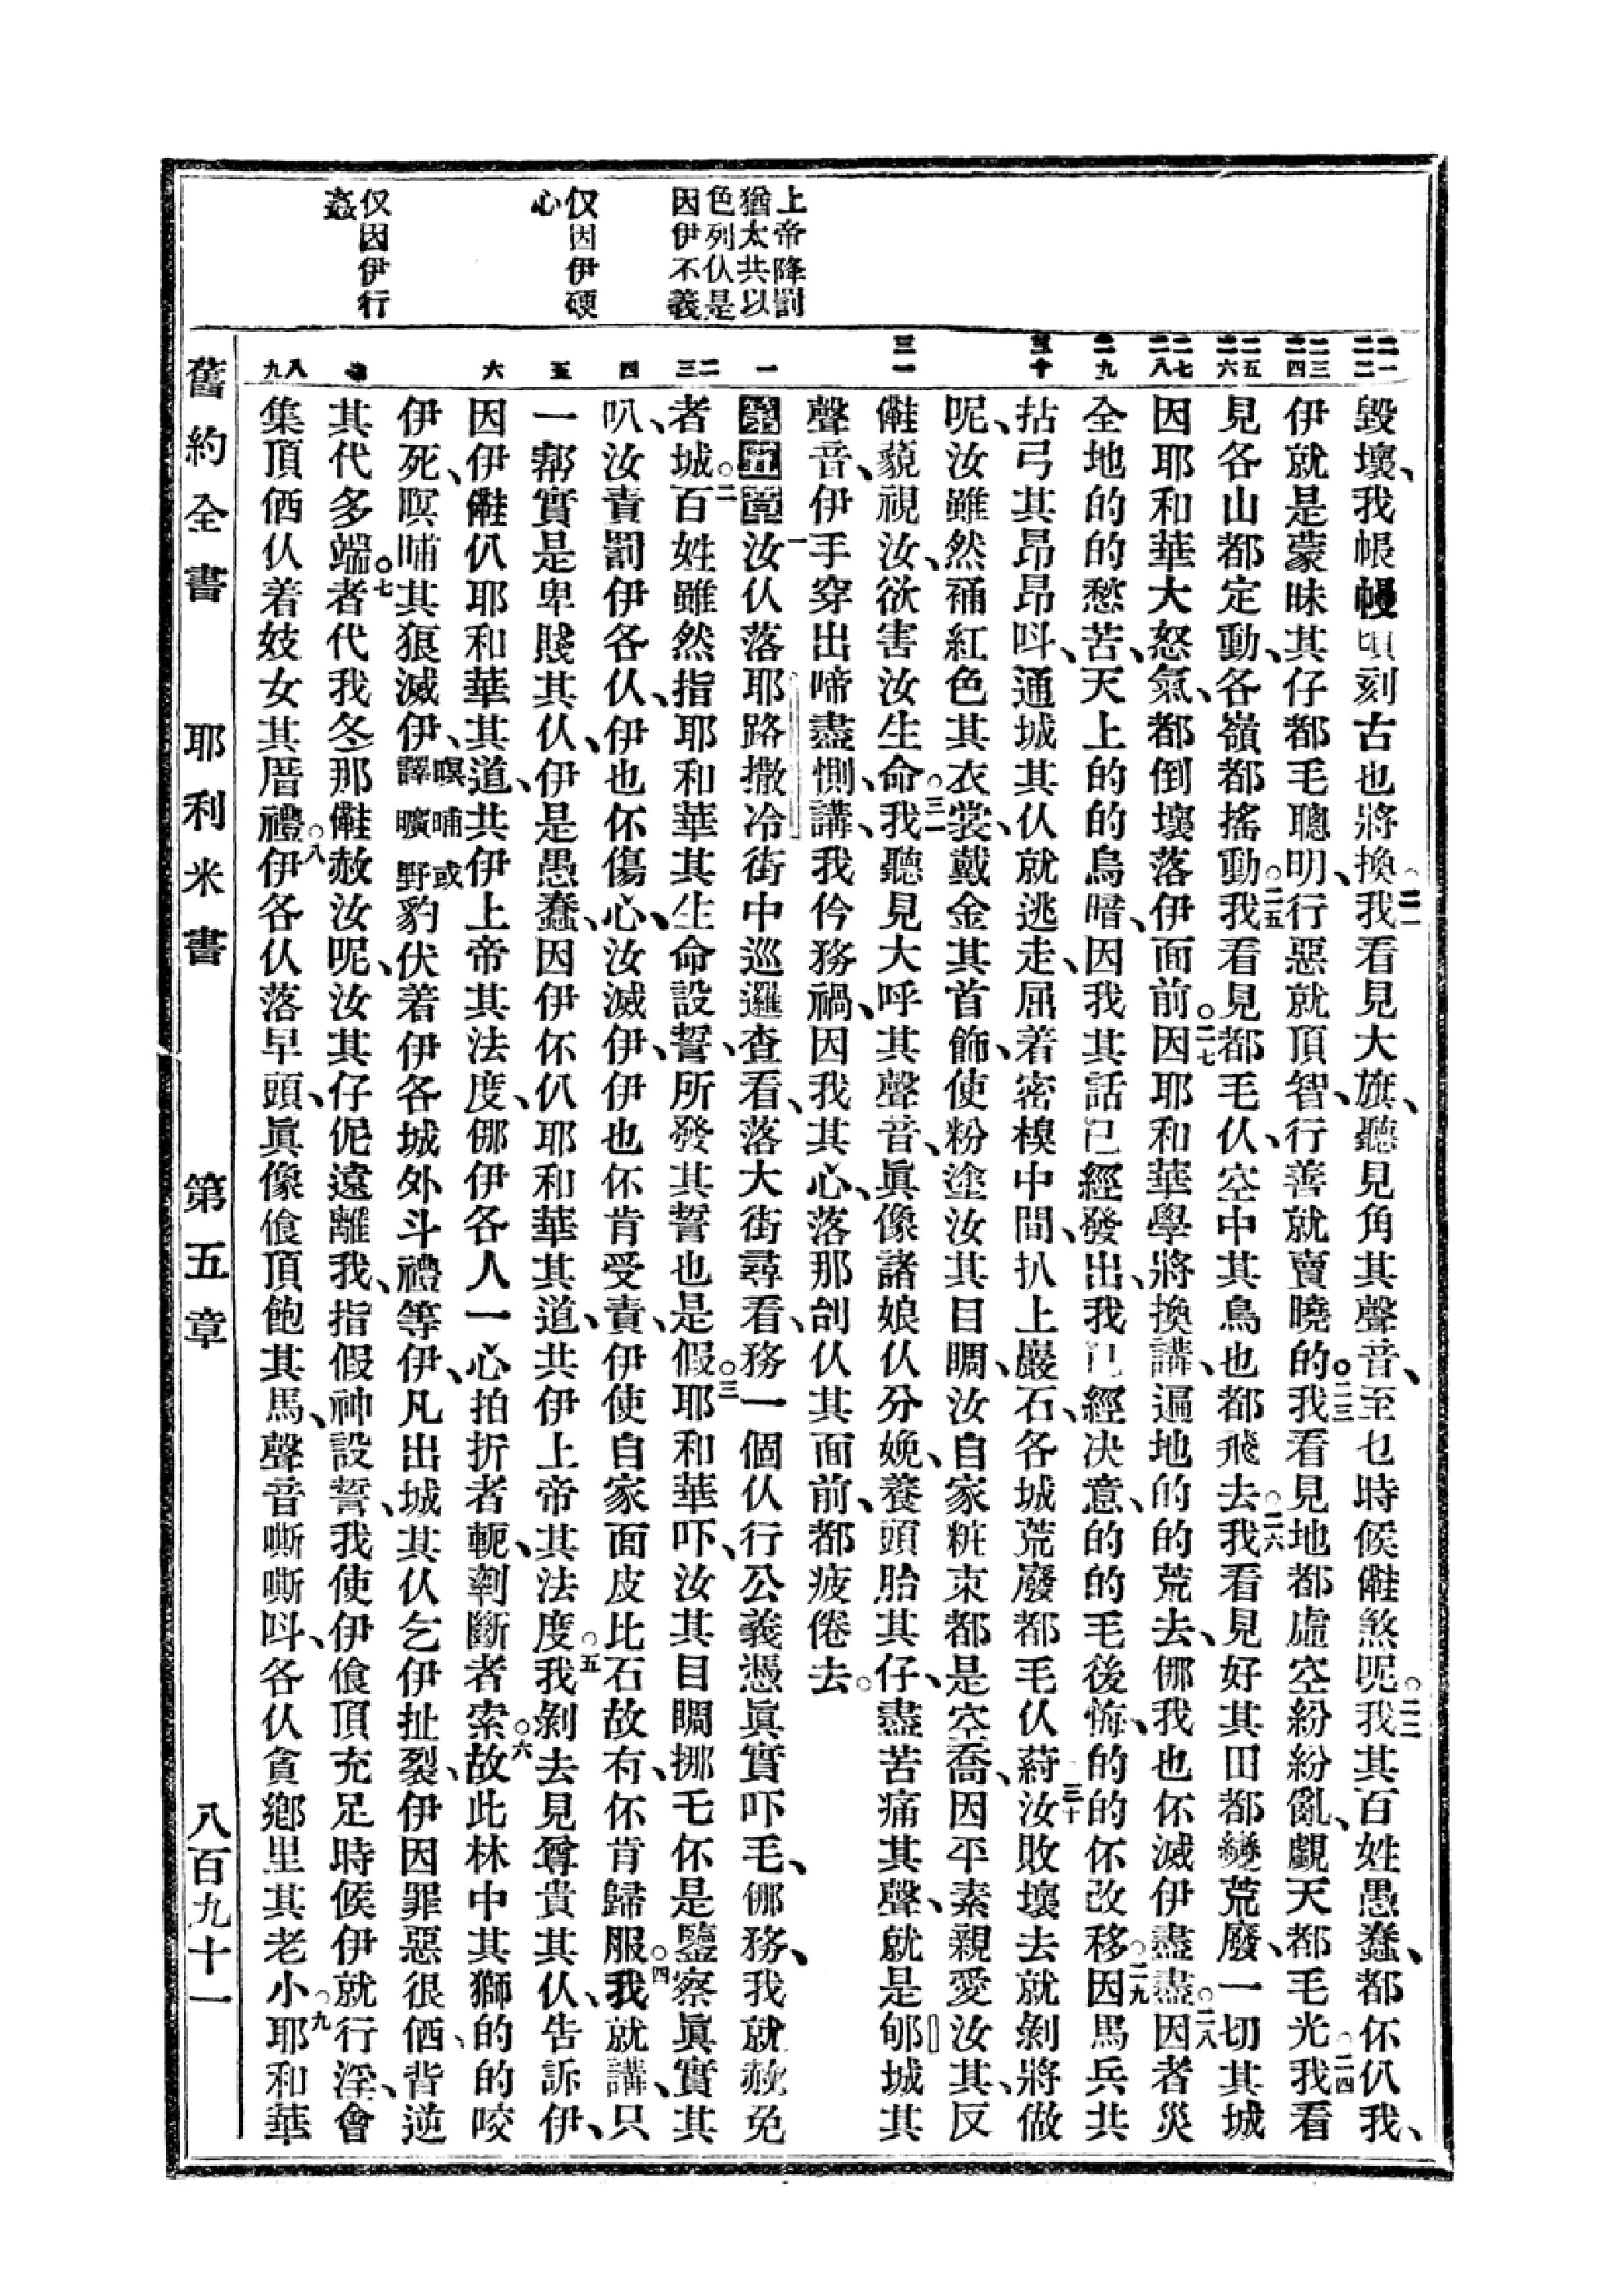 上帝降罰
猶太共以
色列仫是
因伊不義
仅因伊硬
心
仅因伊行
姦
二一
二二
二三
二四
二五
二六
二七
二八
二九
三十
三一
一
二
三
四
五
六
七
八
九
毀壞、我帳幔頃刻古也將換。二一我看見大旗、聽見角其聲音、至乜時候㒕煞呢。二二我其百姓愚蠢、都伓仈我、
伊就是蒙昧其仔都毛聰明、行惡就頂智、行善就賣曉的。二三我看見地都虛空紛紛亂、覷天都毛光。二四我看
見各山都定動、各嶺都搖動。二五我看見都毛仫、空中其鳥也都飛去。二六我看見好其田都變荒廢、一切其城
因耶和華大怒氣、都倒壞落伊面前。二七因耶和華學將換講、遍地的的荒去、㑚我也伓滅伊盡盡。二八因者災
全地的的愁苦、天上的的烏暗、因我其話已經發出、我已經决意、的的毛後悔、的的伓改移。二九因馬兵共
拈弓其昂昂呌、通城其仫就逃走、屈着密模中間、扒上巖石、各城荒廢都毛仫蒔。三十汝敗壞去就剝將做
呢、汝雖然𧙕紅色其衣裳、戴金其首飾、使粉塗汝其目睭、汝自家粧束都是空喬、因平素親愛汝其、反
㒕藐視汝、欲害汝生命。三一我聽見大呼其聲音、眞像諸娘仫分娩、養頭胎其仔、盡苦痛其聲、就是郇城其
聲音、伊手穿出啼盡惻、講、我仱務禍、因我其心、落那刣仫其面前、都疲倦去。
第五章一汝仫落耶路撒冷街中巡邏查看、落大街尋看、務一個仫行公義憑眞實吓毛、㑚務、我就赦免
者城。二百姓雖然指耶和華其生命設誓、所發其誓也是假。三耶和華吓、汝其目睭挪乇伓是鑒察眞實其
叭、汝責罰伊各仫、伊也伓傷心、汝滅伊、伊也伓肯受責、伊使自家面皮比石故冇、伓肯歸服。四我就講、只
一幫實是卑賤其仫、伊是愚蠢、因伊伓仈耶和華其道、共伊上帝其法度。五我剝去見尊貴其仫、告訴伊、
因伊㒕仈耶和華其道、共伊上帝其法度、㑚伊各人一心拍折者軛、剸斷者索。六故此林中其獅的的咬
伊死、暝晡其狼滅伊、暝晡或譯曠野豹伏着伊各城外斗禮等伊、凡出城其仫乞伊扯裂、伊因罪惡很㑚、背逆
其代多端。七者代我冬那㒕赦汝呢、汝其仔伲遠離我、指假神設誓、我使伊飡頂充足時候、伊就行淫、會
集頂㑚仫着妓女其厝禮。八伊各仫落早頭、眞像飡頂飽其馬、聲音嘶嘶呌、各仫貪鄉里其老小。九耶和華
舊約全書　耶利米書　第五章　八百九十一